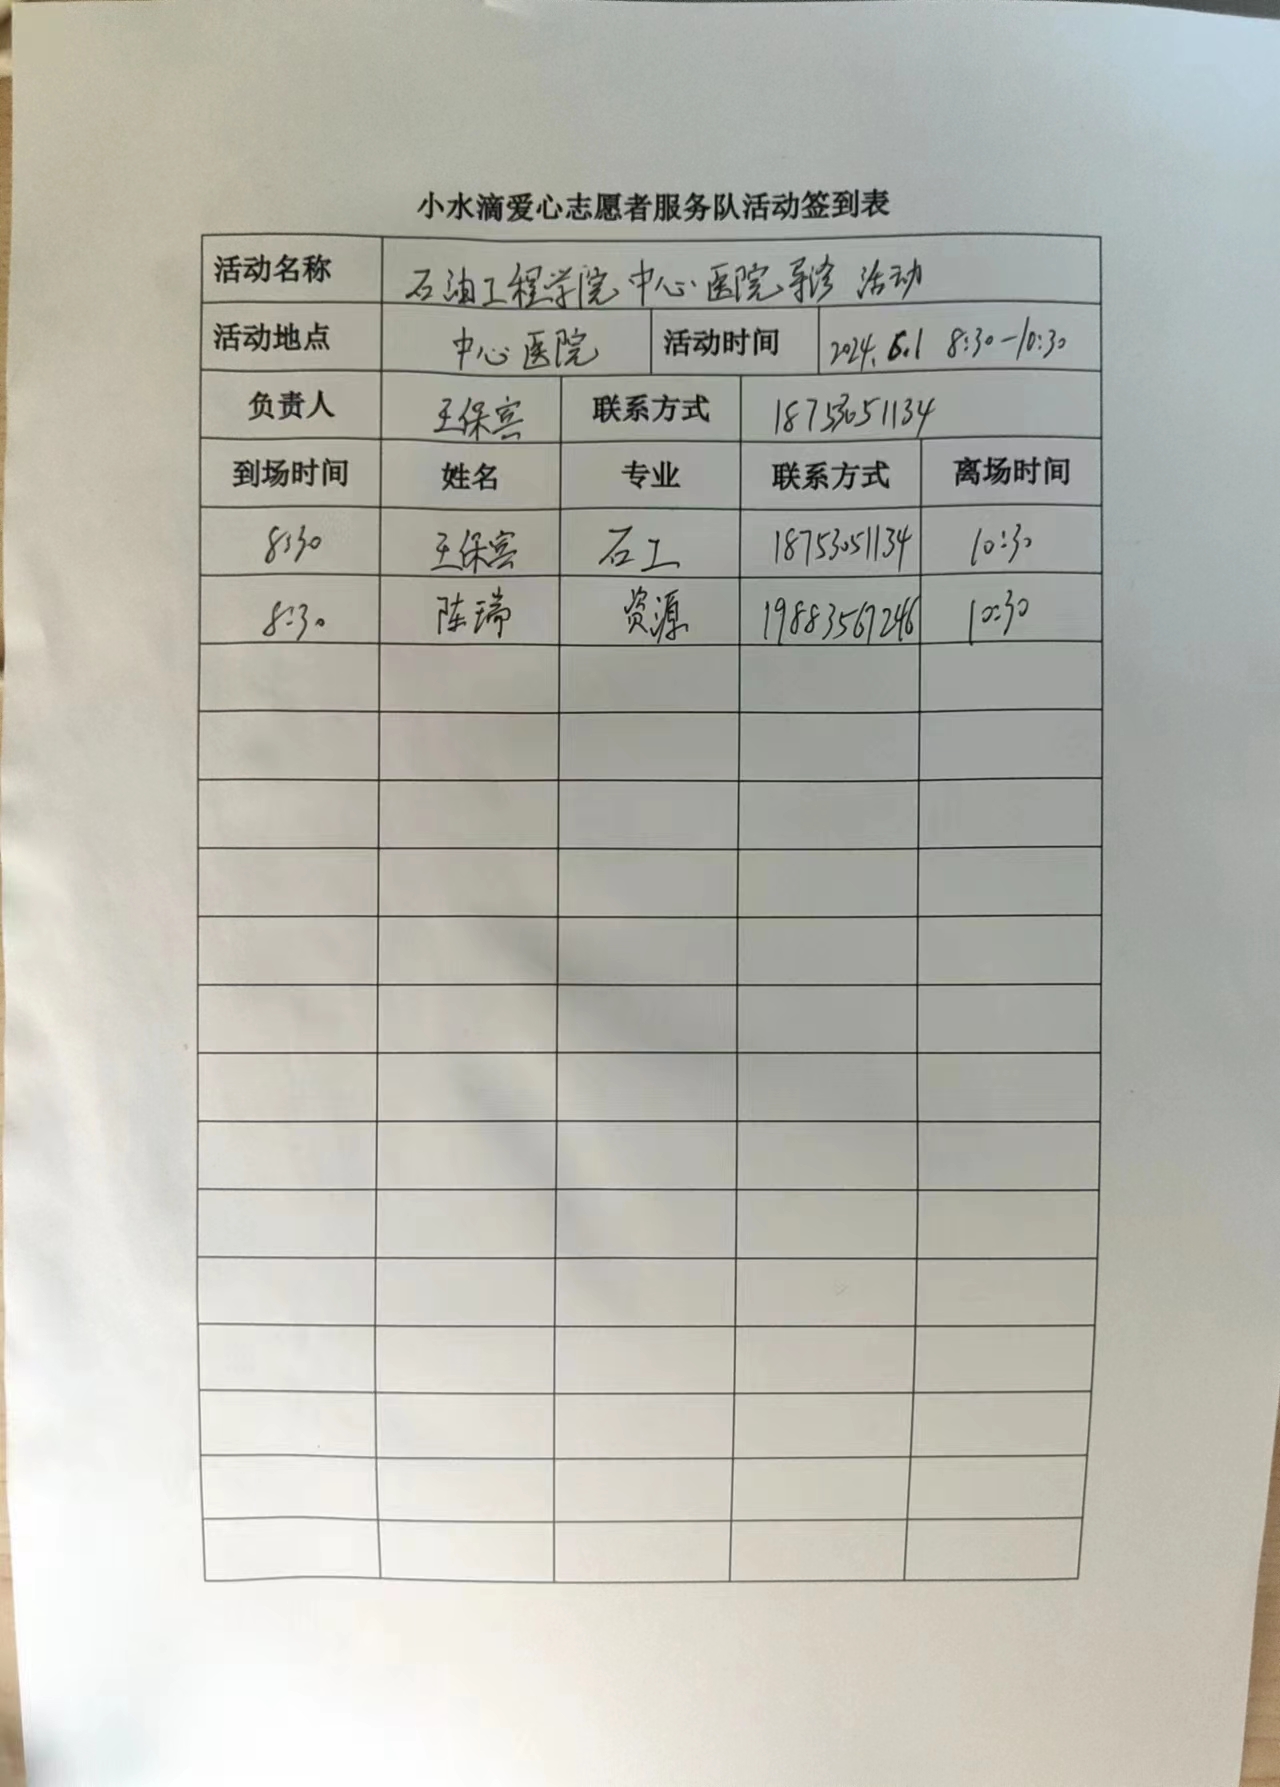 小水滴爱心志愿者服务队活动签到表
活动名称 石油工程学院中心医院导诊 活动
活动地点 中心医院 活动时间 2024.6.1 8:30-10:30
负责人 王保宾 联系方式 18753051134
到场时间 姓名 专业 联系方式 离场时间
8:30 王保宾 石工 18753051134 10:30
8:30 陈瑞 资源 19883567246 10:30